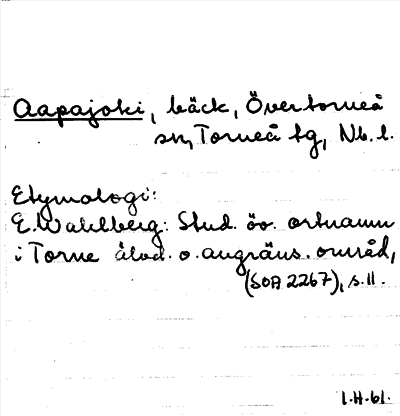 Aapajoki, bäck, Övertorneå
sn, Torneå tg, Nb. l.
Etymologi:
E. Wahlberg: Stud. öv. ortnamn
i Torne älvd. o. angräns. områd,
(SOA 2267), s. 11.
I.H-61.